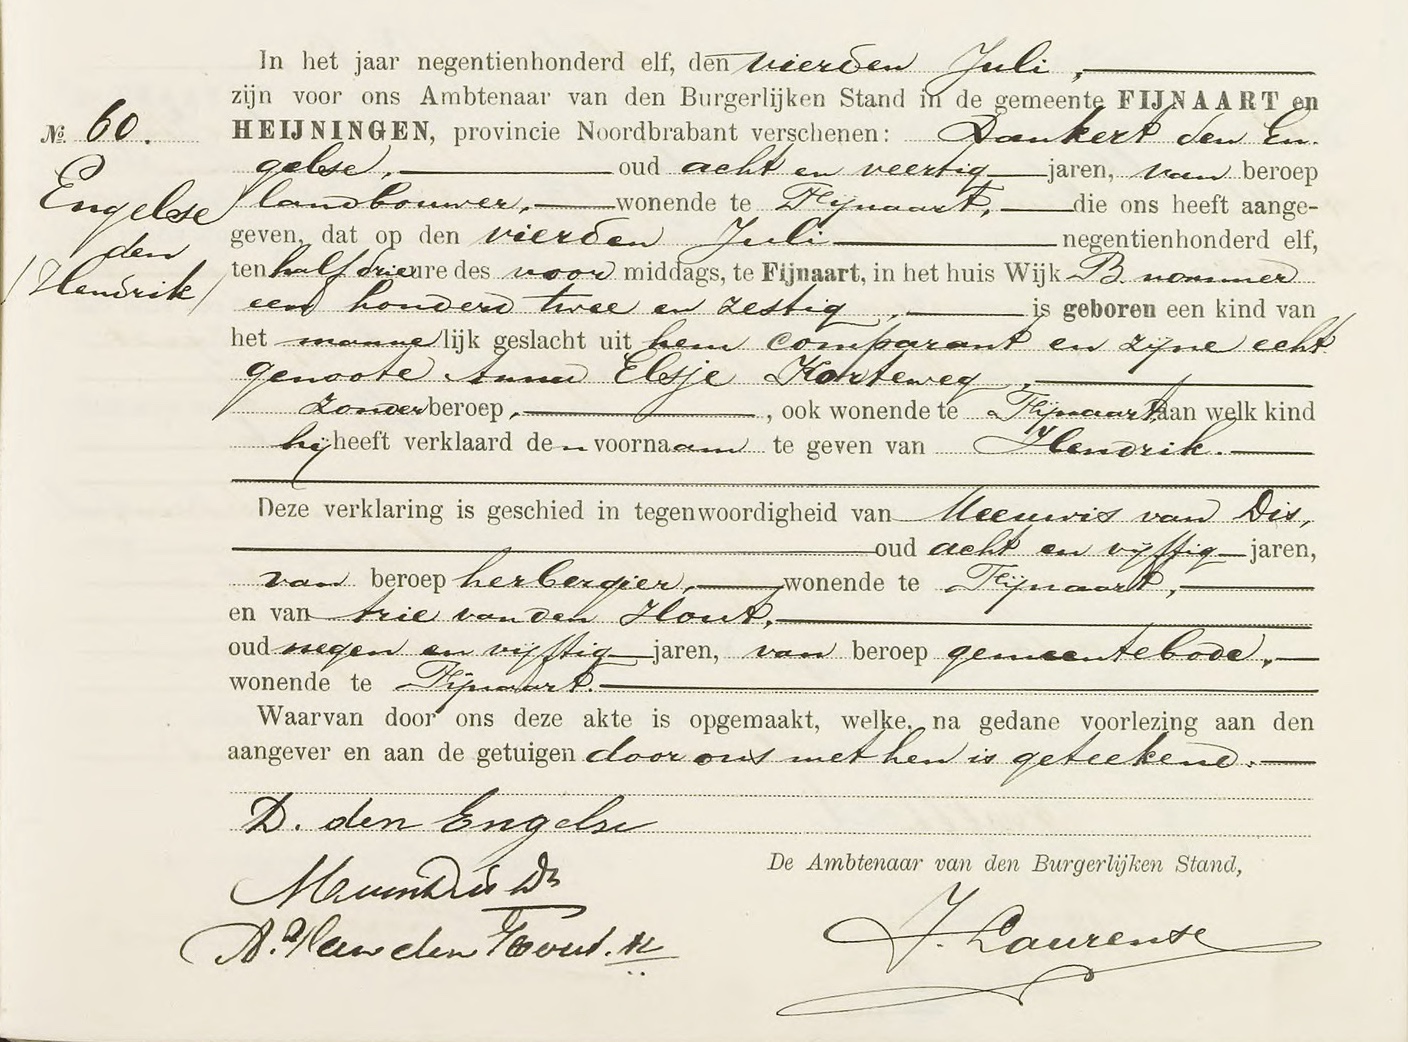 In het jaar negentienhonderd elf, den vierden Juli,
zijn voor ons Ambtenaar van den Burgerlijken Stand in de gemeente FIJNAART en
No. 60. HEIJNINGEN, provincie Noordbrabant verschenen: Dankert den En-
gelse, oud acht en veertig jaren, van beroep
Engelse landbouwer, wonende te Fijnaart, die ons heeft aange-
den geven, dat op den vierden Juli negentienhonderd elf,
/Hendrik/ ten half drie ure des voor middags, te Fijnaart, in het huis Wijk B. nommer
een honderd twee en zestig, is geboren een kind van
het mannelijk geslacht uit hem comparant en zijne echt
genoote Anna Elsje Korteweg,
zonder beroep, , ook wonende te Fijnaart, aan welk kind
hij heeft verklaard den voornaam te geven van Hendrik.
Deze verklaring is geschied in tegenwoordigheid van Meeuwis van Dis,
oud acht en vijftig jaren,
van beroep herbergier, wonende te Fijnaart,
en van Arie van den Hout,
oud negen en vijftig jaren, van beroep gemeentebode,
wonende te Fijnaart.
Waarvan door ons deze akte is opgemaakt, welke, na gedane voorlezing aan den
aangever en aan de getuigen door ons met hen is geteekend.
D. den Engelse
De Ambtenaar van den Burgerlijken Stand,
A. Van den Hout.
J. Laurense